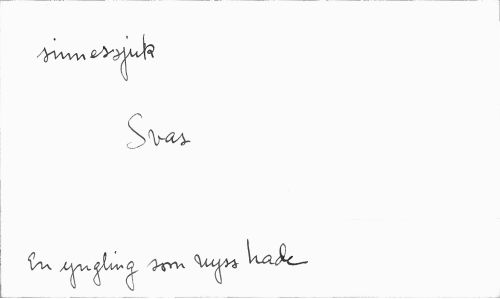 sinnessjuk
Svas
En yngling som nyss hade